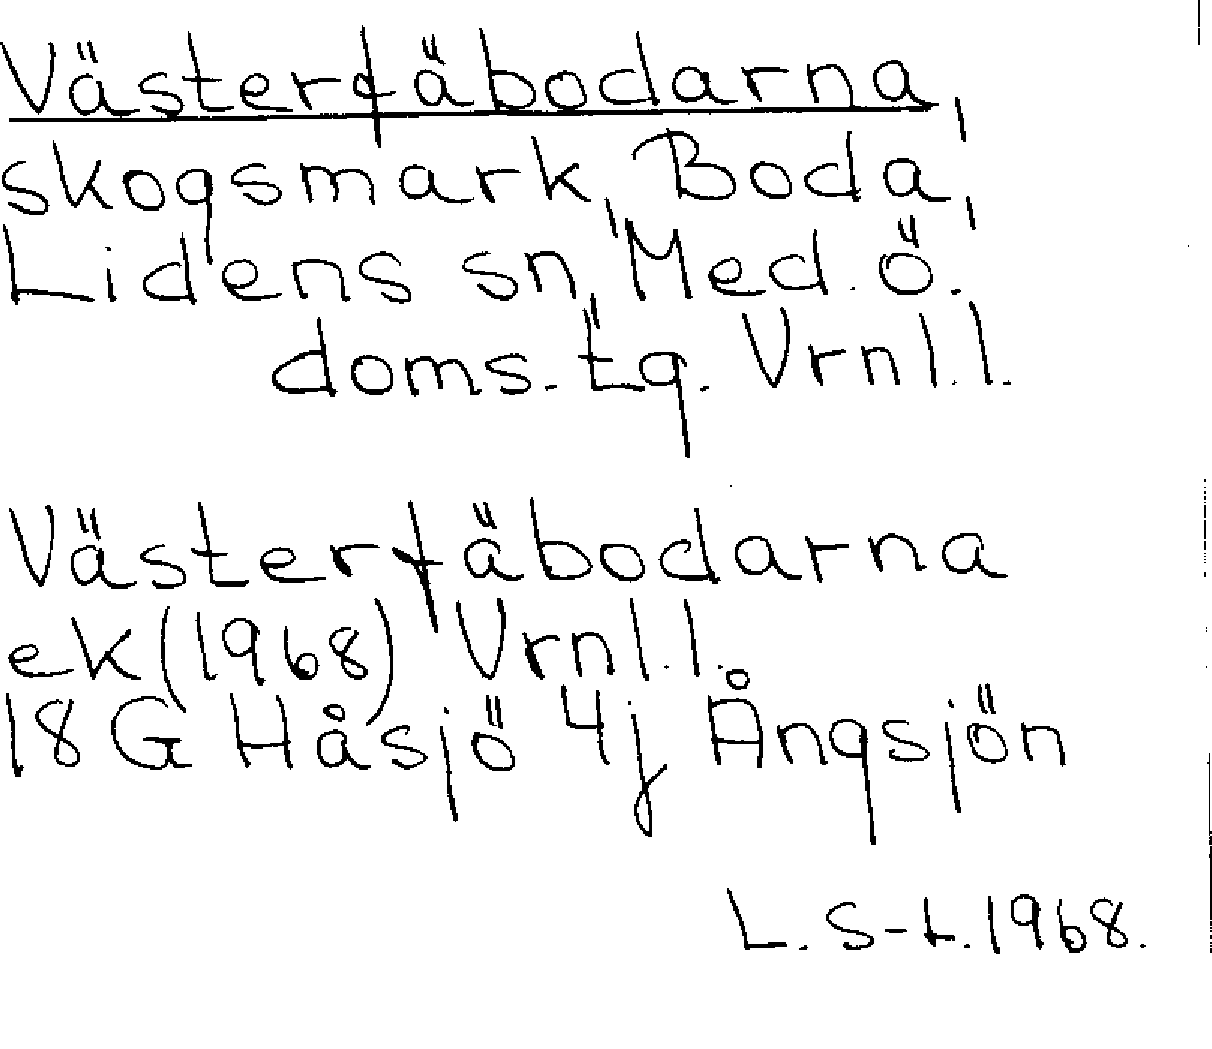 Västerfäbodarna,
skogsmark, Boda,
Lidens sn, Med. Ö.
doms. tg. Vrnl.l.
Västerfäbodarna
ek (1968) Vrnl.l.
18 G Håsjö 4j Ångsjön
L. S-t. 1968.